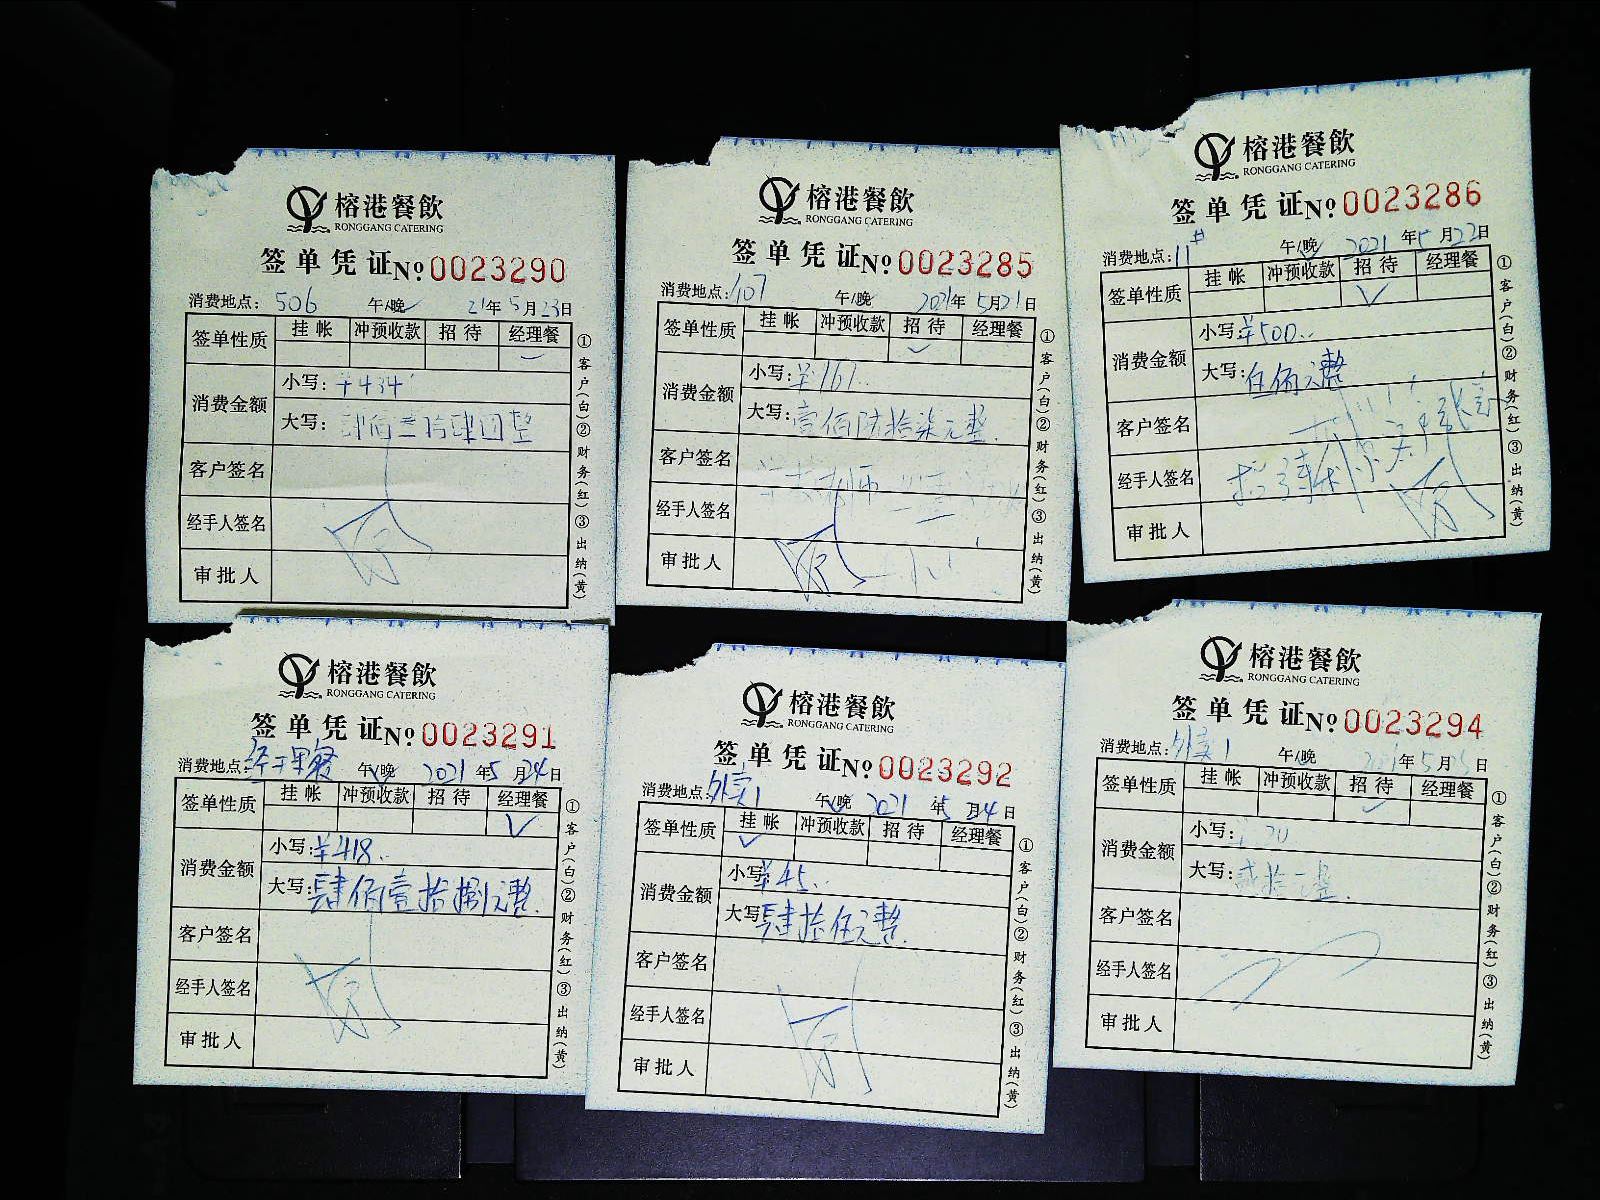 榕港餐飲
RONGGANG CATERING
签单凭证 № 0023290
消费地点: 506 午/晚 21年5月23日
签单性质 挂帐 冲预收款 招待 经理餐
消费金额 小写: ¥434
大写: 肆佰叁拾肆圆整
客户签名
经手人签名
审批人
①客户(白)②财务(红)③出纳(黄)
榕港餐飲
RONGGANG CATERING
签单凭证 № 0023285
消费地点: 107 午/晚 2021年5月21日
签单性质 挂帐 冲预收款 招待 经理餐
消费金额 小写: ¥167..
大写: 壹佰陆拾柒元整.
客户签名
经手人签名
审批人
①客户(白)②财务(红)③出纳(黄)
榕港餐飲
RONGGANG CATERING
签单凭证 № 0023286
消费地点: 11# 午/晚 2021年5月22日
签单性质 挂帐 冲预收款 招待 经理餐
消费金额 小写: ¥500..
大写: 伍佰元整
客户签名
经手人签名
审批人
①客户(白)②财务(红)③出纳(黄)
榕港餐飲
RONGGANG CATERING
签单凭证 № 0023291
消费地点: 经理餐 午/晚 2021年5月24日
签单性质 挂帐 冲预收款 招待 经理餐
消费金额 小写: ¥418..
大写: 肆佰壹拾捌元整.
客户签名
经手人签名
审批人
①客户(白)②财务(红)③出纳(黄)
榕港餐飲
RONGGANG CATERING
签单凭证 № 0023292
消费地点: 外卖1 午/晚 2021年5月24日
签单性质 挂帐 冲预收款 招待 经理餐
消费金额 小写: ¥45..
大写: 肆拾伍元整.
客户签名
经手人签名
审批人
①客户(白)②财务(红)③出纳(黄)
榕港餐飲
RONGGANG CATERING
签单凭证 № 0023294
消费地点: 外卖1 午/晚 年5月 日
签单性质 挂帐 冲预收款 招待 经理餐
消费金额 小写: 20
大写: 贰拾元整.
客户签名
经手人签名
审批人
①客户(白)②财务(红)③出纳(黄)